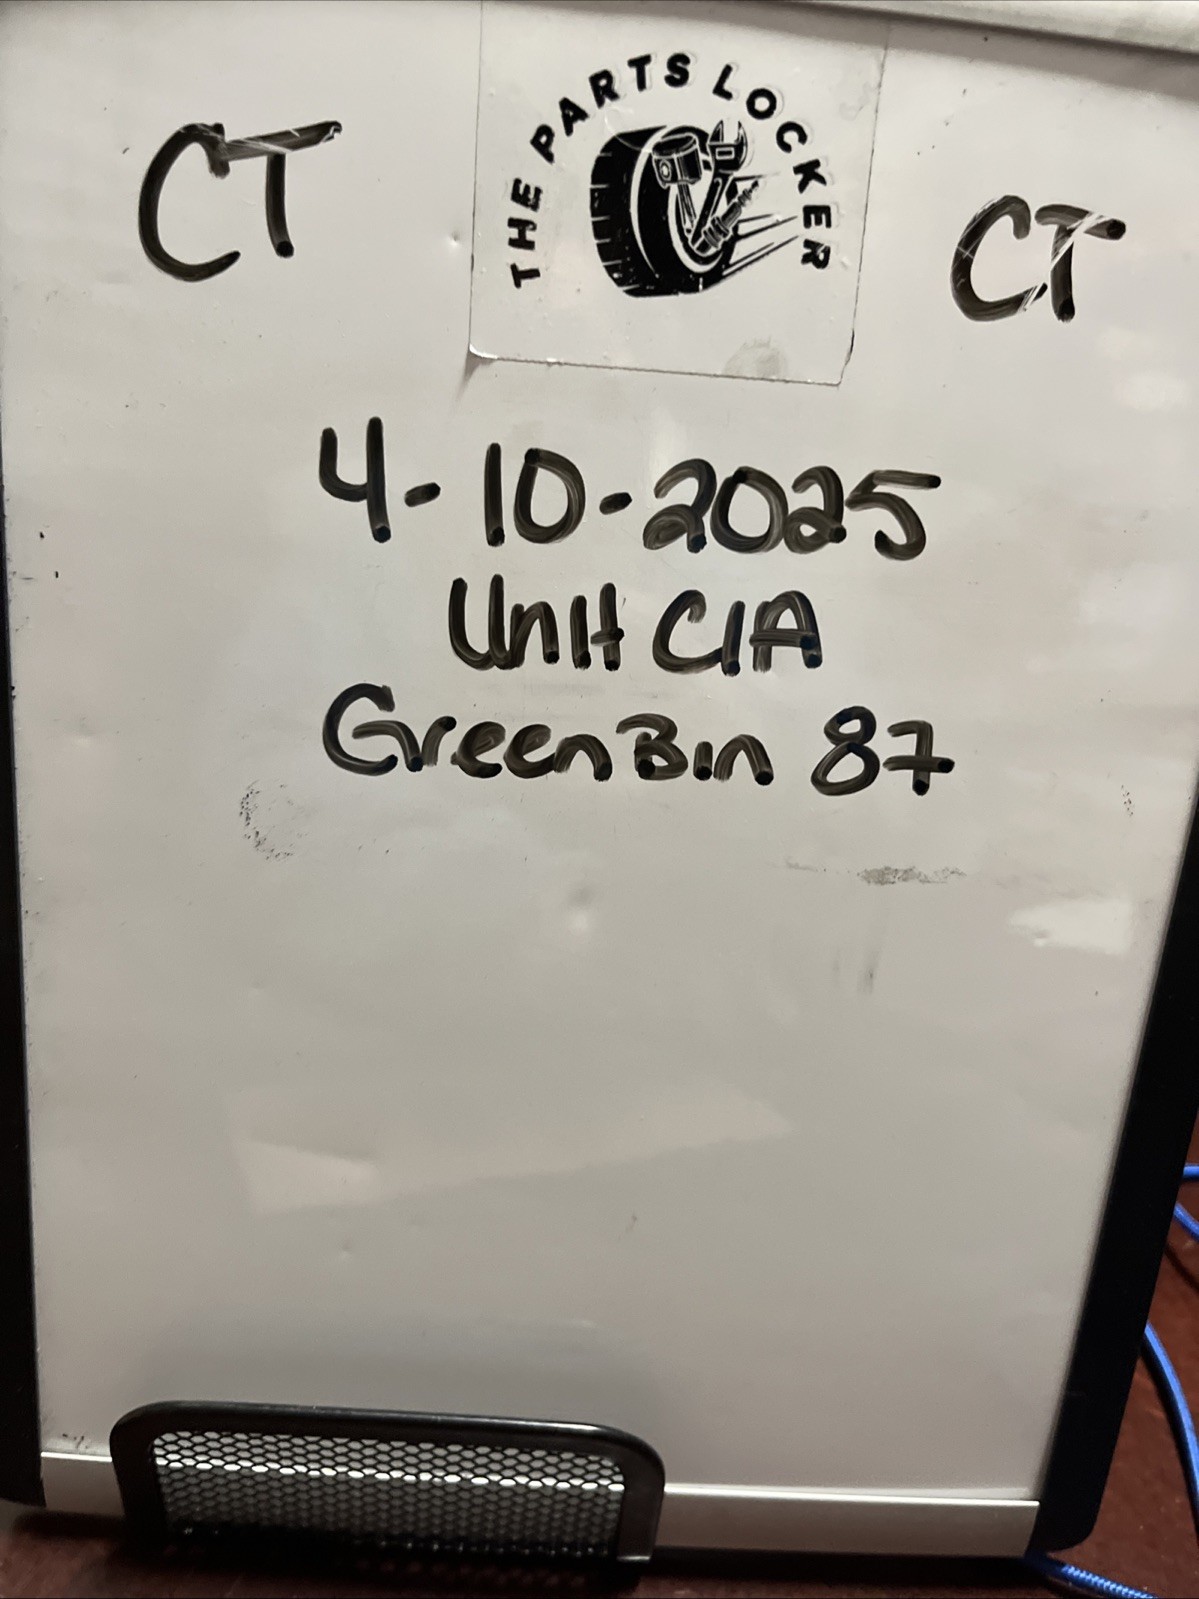 THE PARTS LOCKER
CT
CT
4-10-2025
Unit C1A
Green Bin 87